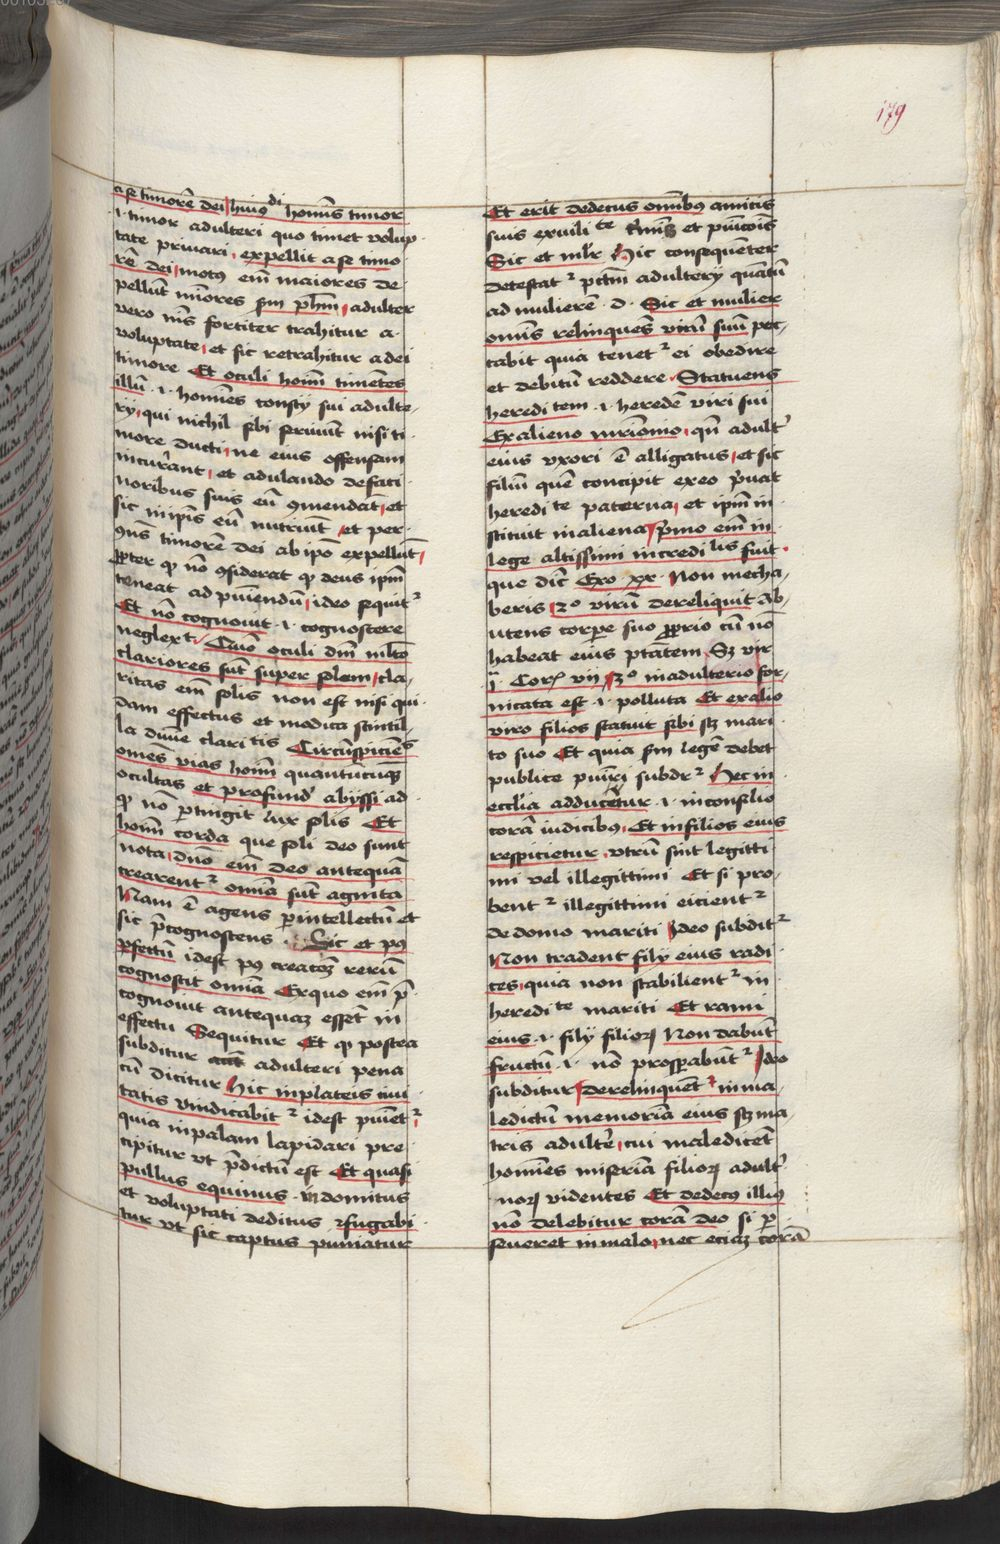 179
a se timorē dei huiꝯdi homīs timor
.i. timor adulteri quo timet volup
tate priuari . expellit a se timo
rē dei motus em̄ maiores de
pellūt mīores scdm phm̄ adulter
vero nīs fortiter trahitur a
voluptate et sic retrahitur a dei
timore Et oculi homīm timētes
illū .i. homīes conscÿ sui adulte
rÿ qui nichil sibi seruiūt nisi ti
more ducti ne eius offensam
incurrant et adulando de faci
noribus suis eū ꝯmendāt et
sic in ipīs eū nutriūt et per
ꝯn̄s timorē dei ab ipō expellūt
ꝓpter qꝫ nō ꝯsiderat qꝫ deus ipm̄
teneat ad puniendū ideo sequitᷣ
Et nō cognouit .i. cognoscere
neglexit Quō oculi dn̄i mlto
clariores sūt super solem cla
ritas em̄ solis non est nisi qui
dam effectus et modica scintil
la diuīe claritis Circūspiciētes
omēs vias homīm quantūcūqꝫ
ocultas et profundū abÿssi ad
qꝫ nō ꝑtingit lux solis Et
homīm corda que soli deo sunt
nota dn̄o em̄ deo antequā
crearentᷣ omīa sūt agnita
Nam ē agens ꝑ intellectū et
sic p̄cognoscens . Sic et pꝰ
ꝑfectū idest pꝰ creacōꝫ rerū
cognoscit omīa Ex quo em̄ p̄
cognouit antequaꝫ essēt in
effectu Sequitur Et qꝫ postea
subditur adulteri pena
cū dicitur Hic in plateis ciui
tatis vindicabitᷣ idest punietᷣ
quia in palam lapidari pre
cipitur vt p̄dictū est Et quasi
pullus equinus . indomitus
et voluptati deditus effugabi
tur vt sic captus puniatur
Et erit dedecus omībꝰ amicis
suis ex vilite crīmīs et punicōis
Sic et mlr̄ Hic consequenter
detestatᷣ pctm̄ adulterÿ quātū
ad mulierē . d. Sic et mulier
omīs relinquēs virū suū pec
cabit quia tenetᷣ ei obedire
et debitū reddere . Statuens
hereditem .i. heredē viri sui
Ex alieno mrīonio . qn̄ adultᷣ
eius vxori ē alligatus et sic
filiū quē concipit ex eo p̄uat
heredite paterna et ipm̄ in
stituit in aliena p̄mo em̄ in
lege altissimi incredilis fuit .
que dic̄ Exo xx . Non mecha
beris 2o virū dereliquit Ab
utens corpe suo ꝓprio cū nō
habeat eius ptatem Sꝫ vir
jͣ Corꝫ vii 3o in adulterio for
nicata est .i. polluta Et ex alio
viro filios statuit sibi scꝫ mari
to suo Et quia scdm legē debet
publice puniri subdrᷣ Hec in
eccl̄ia adducetur .i. in consilio
corā iudicibꝰ . Et in filios eius
respicietur . vtrū sint legitti
mi vel illegittimi Et si pro
bentᷣ illegittimi eicientᷣ
de domo mariti Ideo subditᷣ
Non tradent filÿ eius radi
ces quia non stabilientᷣ in
heredite mariti Et rami
eius .i. filÿ filioꝝ Non dabūt
fructū .i. nō prosꝑabūtᷣ Ideo
subditur Derelinquētᷣ in ma
ledictū memoriā eius scꝫ ma
tris adultᷣe cui maledicēt
homīes miseriā filioꝝ adultᷣ
noꝝ videntes Et dedecꝰ illiꝰ
nō delebitur corā deo si ꝑ
seueret in malo nec eciaꝫ corā